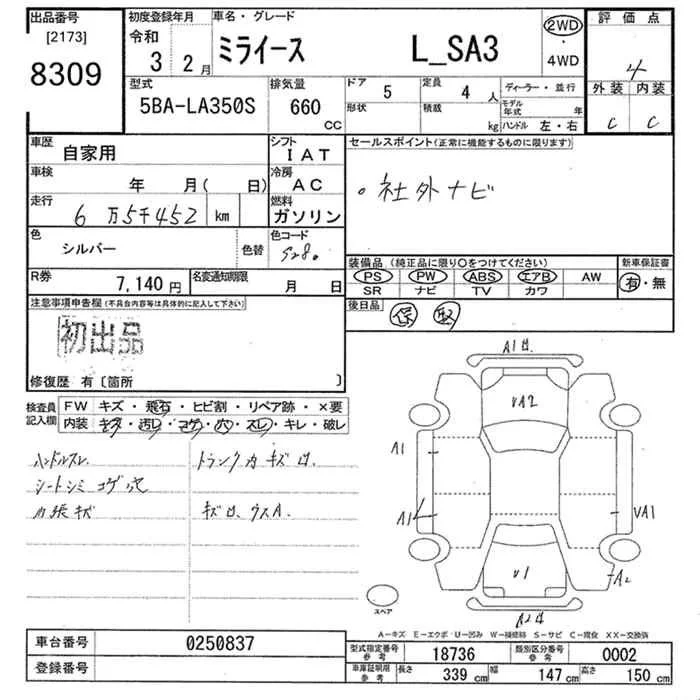 出品番号
[2173]
8309
初度登録年月
令和
3 2月
車名・グレード
ミライース L_SA3
2WD
・
4WD
評価点
4
外装 内装
C C
型式
5BA-LA350S
排気量
660
CC
ドア
5
形状
定員
4 人
積載
kg
ディーラー・並行
モデル
年式 年
ハンドル 左・右
車歴
自家用
シフト
IAT
車検
年 月( 日)
冷房
AC
走行
6万5千452 km
燃料
ガソリン
色
シルバー
色替
色コード
S28
R券
7,140円
名変通知期限
月 日
セールスポイント(正常に機能するものに限ります)
。社外ナビ
装備品(純正品に限り○をつけてください)
PS PW ABS エアB AW
SR ナビ TV カワ
新車保証書
有・無
後日品
保 取
注意事項申告欄(不具合内容等は具体的に記入して下さい)
初出品
修復歴 有〔箇所 〕
検査員
記入欄
FW キズ・飛石・ヒビ割・リペア跡・×要
内装 キズ・汚レ・コゲ・穴・スレ・キレ・破レ
ハンドルスレ
シートシミ コゲ穴
内張キズ
トランク内キズ
A1
VA2
A1
A1
VA1
V1
A2
A2
スペア
A-キズ E-エクボ U-凹み W-補修跡 S-サビ C-腐食 XX-交換済
車台番号
0250837
登録番号
型式指定番号
参考
18736
類別区分番号
参考
0002
車庫証明用
参考
長さ
339 cm
幅
147 cm
高さ
150 cm